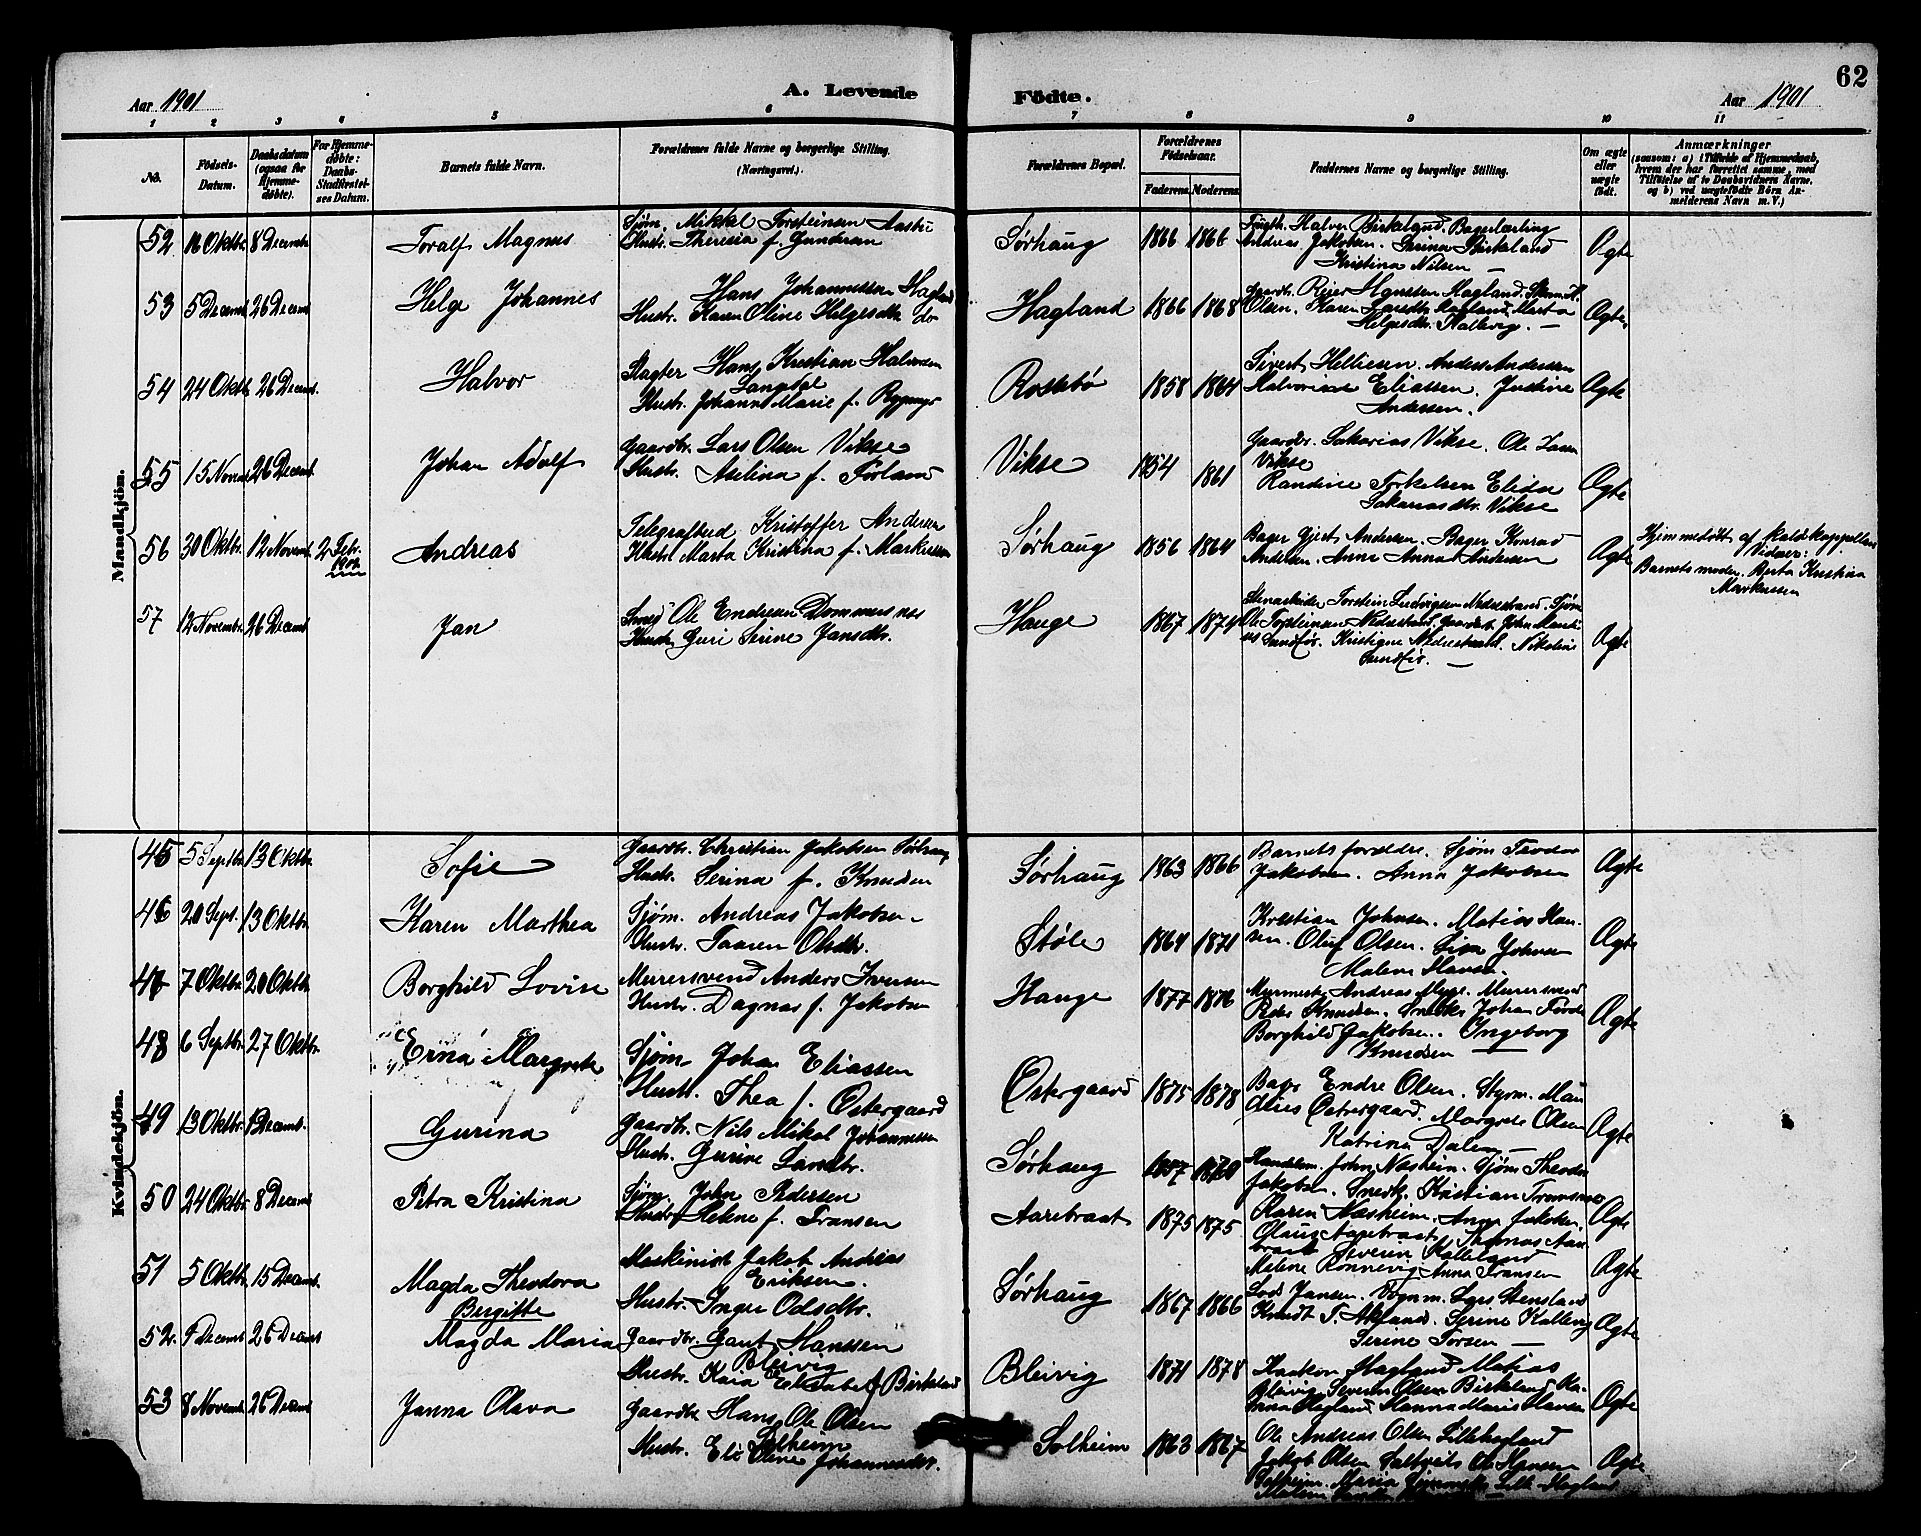 62
Aar 1901
A. Levende Födte.
Aar 1901
1 2 3 4 5 6 7 8 9 10 11
No.
Födsels-Datum.
Daabsdatum (ogsaa for Hjemmedöbte).
For Hjemmedöbte: Daabs-Stadfæstelses Datum.
Barnets fulde Navn.
Forældrenes fulde Navne og borgerlige Stilling. (Næringsvei.)
Forældrenes Bopæl.
Forældrenes Födselsaar.
Faderens. Moderens.
Faddernes Navne og borgerlige Stilling.
Om ægte eller uægte født.
Anmærkninger
(saasom: a) i Tilfælde af Hjemmedaab, hvem der har forrettet samme, med Tilføielse af to Daabsvidners Navne, og b) ved uægtefødte Börn Anmelderens Navn m. V.)
Mandkjön.
52 16 Oktbr 8 Decembr Toralf Magnus
Sjøm. Mikkel Torsteinsen
Hustr. Theresia f. Gundersen
Sørhaug 1866 1866
Halvor Birkeland. Bagerlærling
Andreas Jakobsen. Serina Birkeland
Kristina Nilsen —
Ægte
53 5 Decemb 26 Decemb Helge Johannes
Hans Johannessen Hagland
Hustr. Karen Oline Helgesdtr. do
Hagland 1866 1868
Gaardbr. Reier Hanssen Hagland.
Olsen. Karen Larsdtr Hagland, Marta
Helgesdtr. Kallevig. —
Ægte
54 24 Oktb 26 Decemb. Halvor
Slagter Hans Kristian Halvorsen
Langdal
Hustr. Johanne Marie f.
Rossebø 1858 1864
Sivert Helliesen. Anders Andersen
Halvorine Eliassen. Justine
Andersen.
Ægte
55 15 Novem 26 Decemb. Johan Adolf
Gaardbr. Lars Olsen Vikse
Hustr. Aselina f. Førland
Vikse 1854 1861
Gaardbr. Sakarias Vikse. Ole Larsen
Vikse
Randine Torkelsen Elida
Sakariasdtr. Vikse
Ægte
56 30 Oktbr. 12 Novemb. 2 Febr. 1902 Andreas
Telegrafbud Kristoffer Andersen
Hustr Marta Kristina f. Markussen
Sørhaug 1856 1864
Bager Gjert Andersen. Bager Konrad
Andersen. Anne Anna Andersen
Ægte
Hjemmedøbt af
Vidner:
Barnets moder. Berta Kristina
Markussen
57 12 Novembr. 26 Decemb Jan
Smed Ole Endresen Dommersnes
Hustr. Guri Serine Jansdtr.
Hauge 1867 1874
Stenarbeider Torstein Ludvigsen Nedrestrand. Sjøm
Ole Torsteinsen Nedrestrand. Gaardbr. John
Sundfør. Kristigne Nedrestrand. Nikoline
Sundfør. —
Ægte
Kvindekjön.
45 5 Septbr 13 Oktbr. Sofie
Gaardbr. Christian Jakobsen Sørhaug
Hustr. Serina f. Knudsen
Sørhaug 1863 1866
Barnets forældre. Sjøm Teodor
Jakobsen. Anna Jakobsen
Ægte
46 20 Sept. 13 Oktbr. Karen Marthea
Sjøm. Andreas Jakobsen
Hustr. Taaren Olsdtr.
Støle 1864 1871
Kristian Johnsen. Matias Hansen. Oluf Olsen. Johnsen
Malene Hansen.
Ægte
47 7 Oktbr 20 Oktbr Borghild Lovise
Murersvend Anders Iversen
Hustr. Dagnas f. Jakobsen
Hauge 1877 1876
Murmester Andreas Murersvend
Peder Knudsen. Snedker Johan
Borghild Jakobsen. Ingeborg
Knudsen —
Ægte
48 6 Septbr. 27 Oktbr. Erna Margrete
Sjøm. Johan Eliassen
Hustr. Thea f. Østergaard
Østergaard 1875 1878
Bager Endre Olsen. Styrm. Mauritius Østergaard. Margrete Olsen
Katrina Dalen —
Ægte
49 13 Oktbr. 1 Decemb. Gurina
Gaardbr. Nils Mikal Johannessen
Hustr. Gurine Larsdtr.
Sørhaug
John Næsheim. Sjøm Theodor
Jakobsen. Snedk. Kristian
Karen Næsheim. Anna Jakobsen
Ægte
50 24 Oktbr. 8 Decemb Petra Kristina
Sjøm. John Pedersen
Hustr. Helene f. Fransen
Aarebraat 1875 1875
Olaus Aarebraat. Thomas Aarebraat Severin Kalleland
Malene Rønnevig Anna Fransen
Ægte
51 5 Oktbr. 15 Decemb. Magda Theodora
Bergitte
Maskinist Jakob Andreas
Eriksen.
Hustr. Inger Odsdtr.
Sørhaug 1867 1866
Jansen. Lars Stensland
Knudt T. Aksland. Serine Kallevig
Serine Torsen —
Ægte
52. 9 Decemb 26 Decemb Magda Maria
Gaardbr. Gaut Hanssen
Bleivig
Hustr. Kaia Elisabet f. Birkeland
Bleivig 1871 1878
Haakon Hagland Matias
Bleivig Severin Olsen Birkeland
Hagland Hanna Marie Hansen
Ægte
53 8 Novemb 26 Decemb Janna Olava
Gaardbr Hans Ole Olsen
Solheim
Hustr. Eli Oline Johannesdtr.
Solheim 1863 1867
Ole Andreas Olsen Lillehagland
Jakob Olsen Ole Hansen
Solheim. Maria Lille Hagland
Ægte